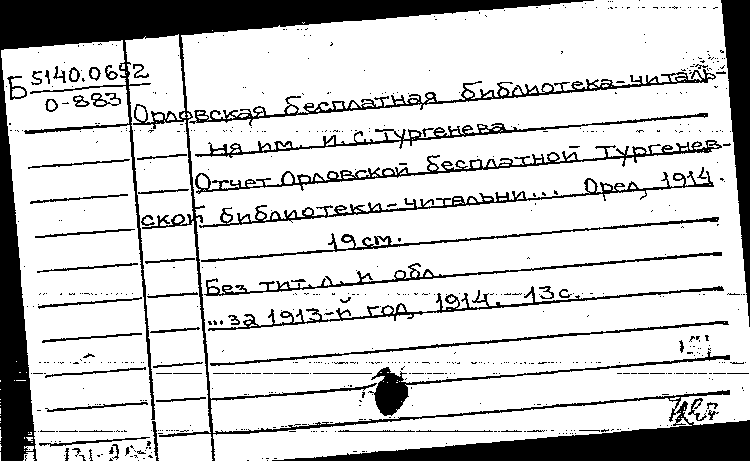 Б 5140.0652
О-883
Орловская бесплатная библиотека-читаль-
ня им. И.С. Тургенева.
Отчет Орловской бесплатной Тургенев-
ской библиотеки-читальни... Орел, 1914.
19см.
Без тит. л. и обл.
...за 1913-й год. 1914. 13с.